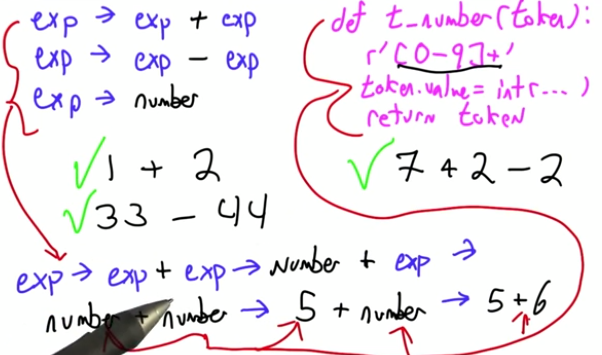 exp → exp + exp
exp → exp - exp
exp → number
def t_number(token):
r'[0-9]+'
token.value = int(...)
return token
✓ 1 + 2
✓ 33 - 44
✓ 7 + 2 - 2
exp → exp + exp → Number + exp →
number + number → 5 + number → 5 + 6